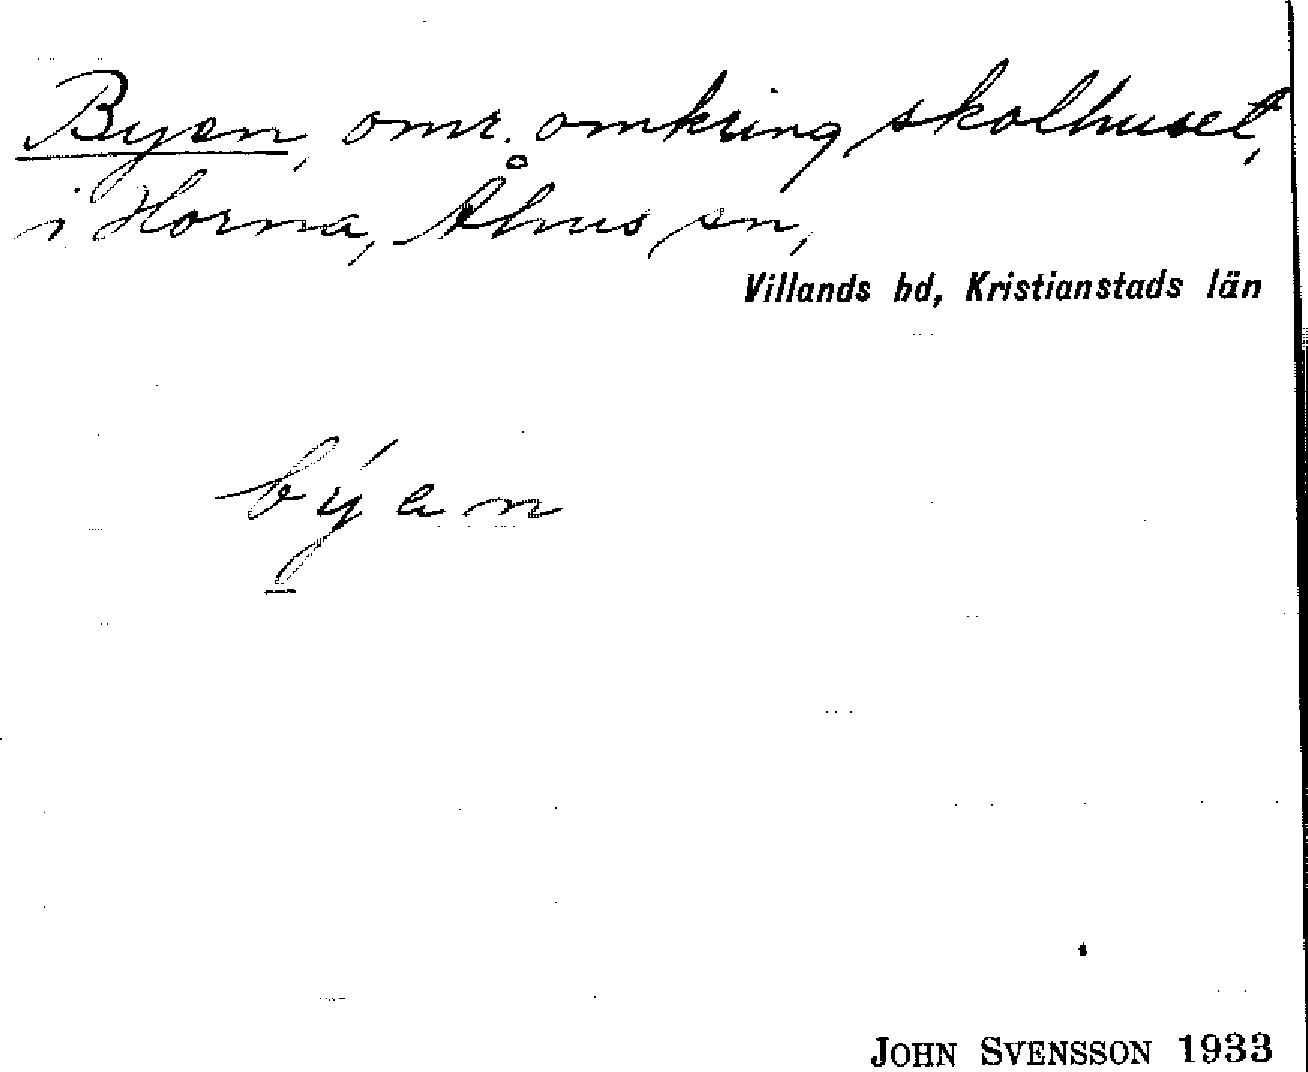 Byen, omr. omkring skolhuset,
i Horna, Åhus sn,
Villands hd, Kristianstads län
býen
JOHN SVENSSON 1933